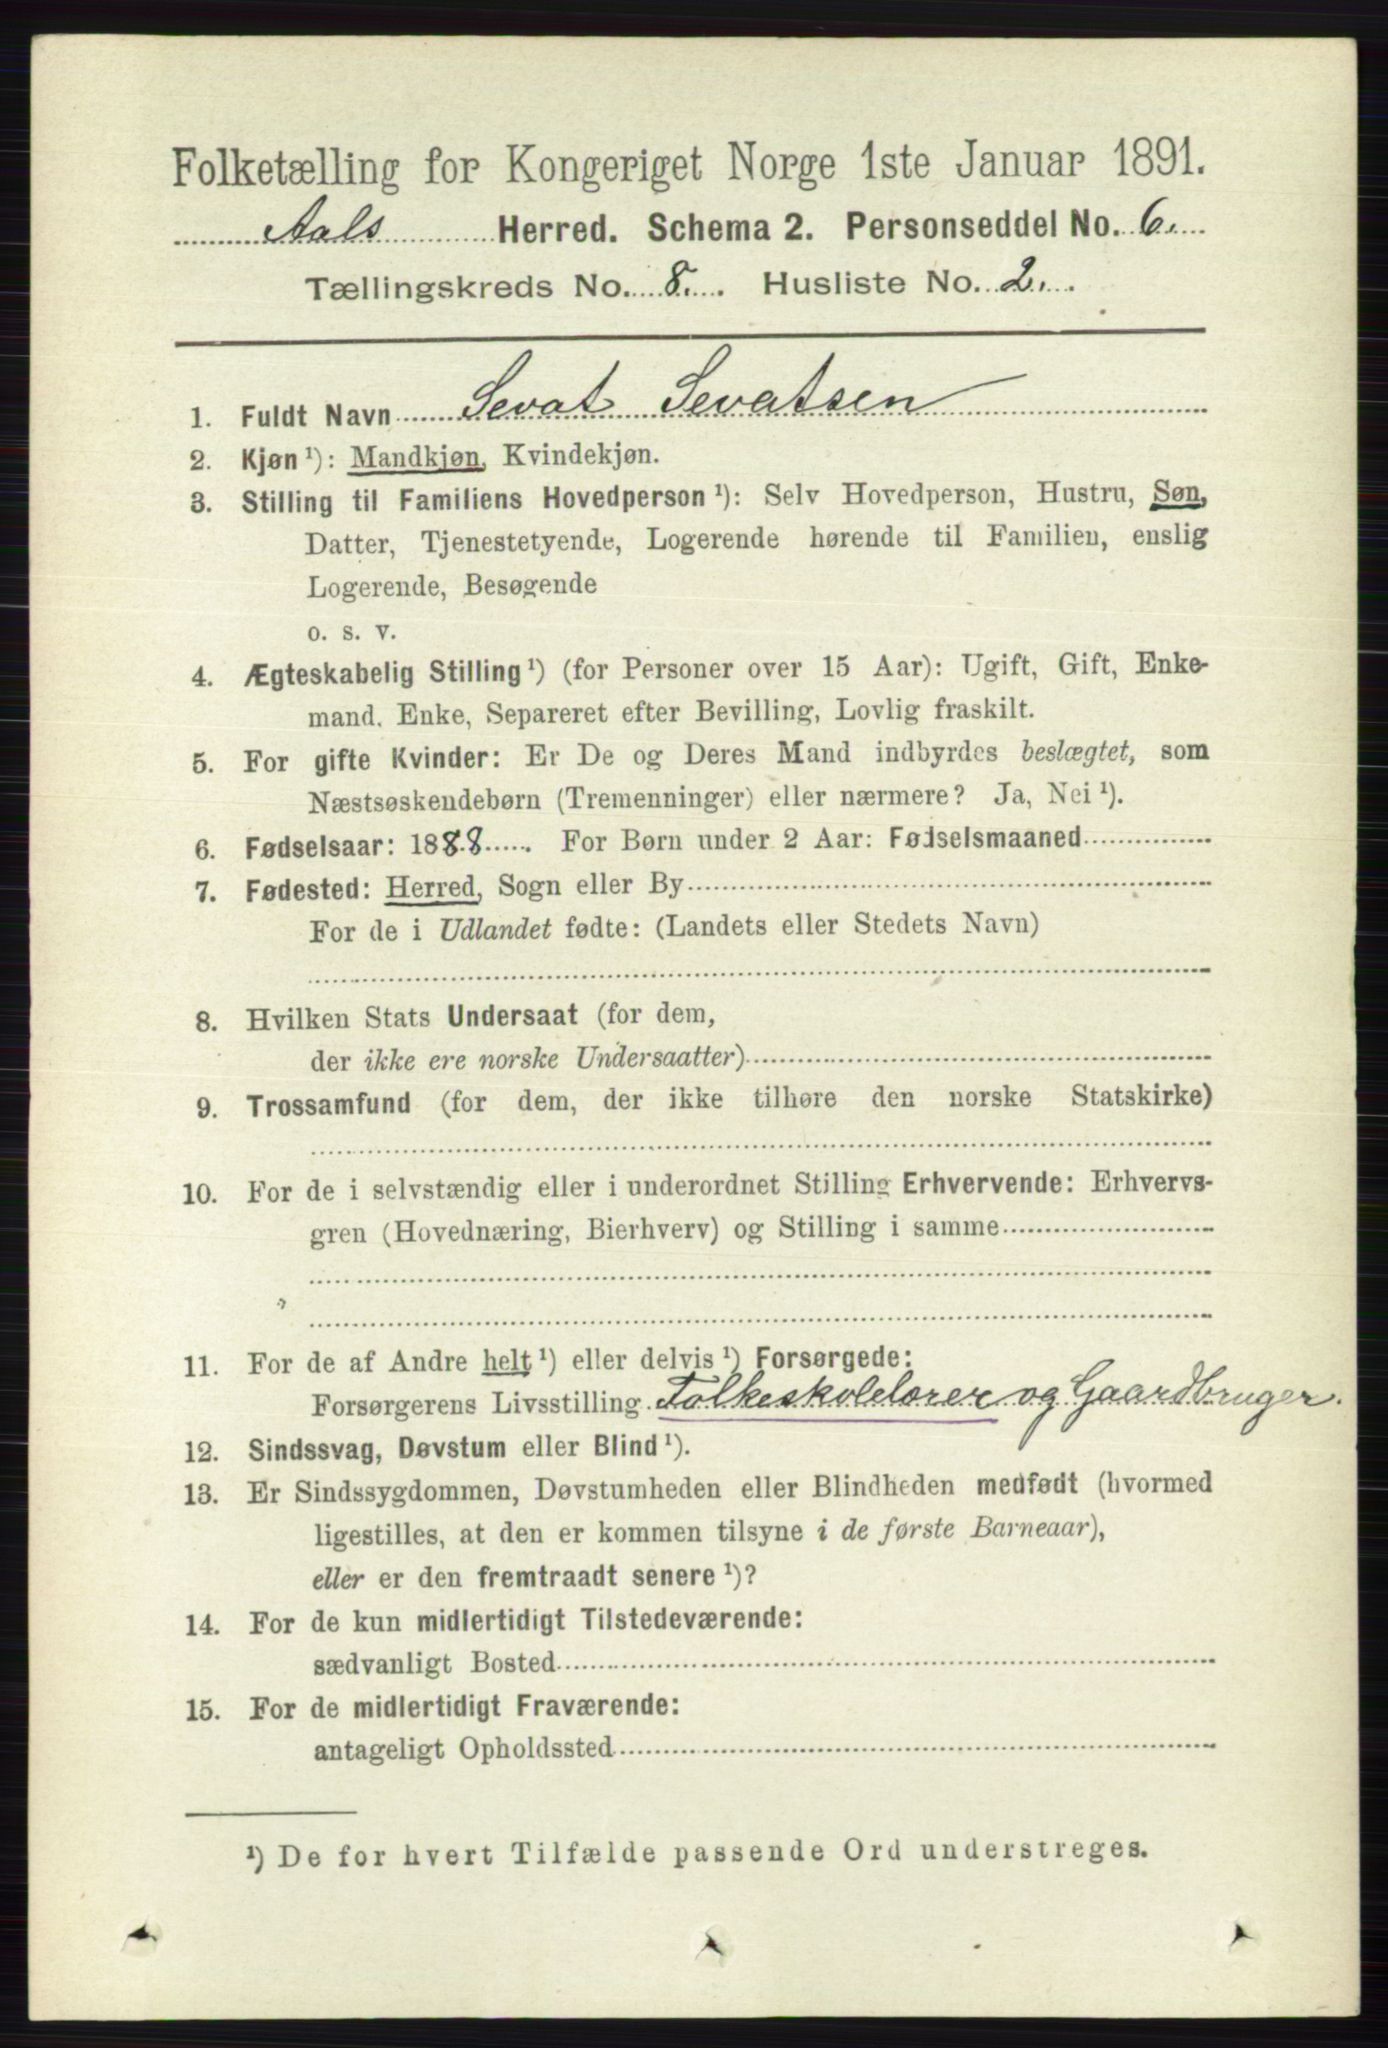 Folketælling for Kongeriget Norge 1ste Januar 1891.
Aals Herred. Schema 2. Personseddel No. 6.
Tællingskreds No. 8. Husliste No. 2.
1. Fuldt Navn Sevat Sevatsen
2. Kjøn ¹): Mandkjøn, Kvindekjøn.
3. Stilling til Familiens Hovedperson ¹): Selv Hovedperson, Hustru, Søn,
Datter, Tjenestetyende, Logerende hørende til Familien, enslig
Logerende, Besøgende
o. s. v.
4. Ægteskabelig Stilling ¹) (for Personer over 15 Aar): Ugift, Gift, Enke-
mand, Enke, Separeret efter Bevilling, Lovlig fraskilt.
5. For gifte Kvinder: Er De og Deres Mand indbyrdes beslægtet, som
Næstsøskendebørn (Tremenninger) eller nærmere? Ja, Nei ¹).
6. Fødselsaar: 1888. For Børn under 2 Aar: Fødselsmaaned
7. Fødested: Herred, Sogn eller By
For de i Udlandet fødte: (Landets eller Stedets Navn)
8. Hvilken Stats Undersaat (for dem,
der ikke ere norske Undersaatter)
9. Trossamfund (for dem, der ikke tilhøre den norske Statskirke)
10. For de i selvstændig eller i underordnet Stilling Erhvervende: Erhvervs-
gren (Hovednæring, Bierhverv) og Stilling i samme
11. For de af Andre helt ¹) eller delvis ¹) Forsørgede:
Forsørgerens Livsstilling Folkeskolelærer og Gaardbruger.
12. Sindssvag, Døvstum eller Blind ¹).
13. Er Sindssygdommen, Døvstumheden eller Blindheden medfødt (hvormed
ligestilles, at den er kommen tilsyne i de første Barneaar),
eller er den fremtraadt senere ¹)?
14. For de kun midlertidigt Tilstedeværende:
sædvanligt Bosted
15. For de midlertidigt Fraværende:
antageligt Opholdssted
¹) De for hvert Tilfælde passende Ord understreges.